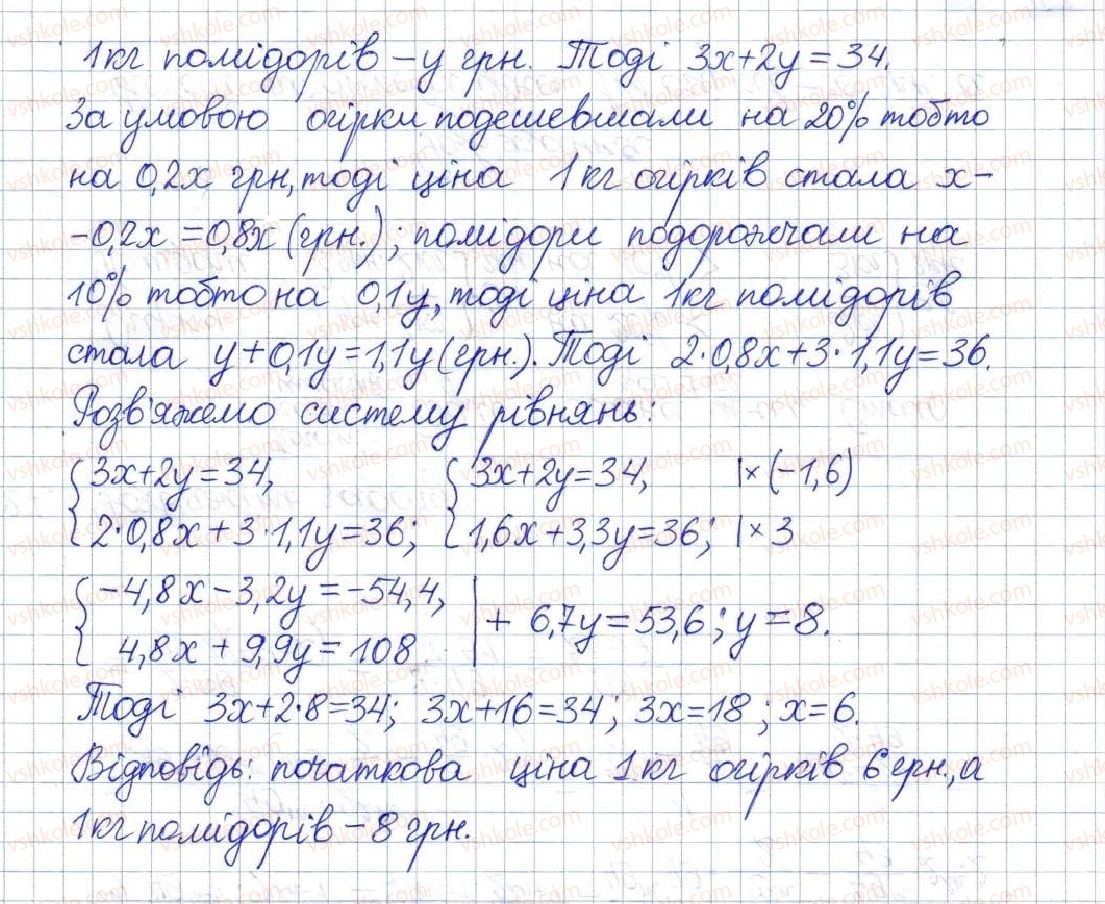 1кг помідорів – y грн. Тоді 3x+2y=34.
За умовою огірки подешевшали на 20% тобто
на 0,2x грн, тоді ціна 1кг огірків стала x-
-0,2x=0,8x (грн.); помідори подорожчали на
10% тобто на 0,1y, тоді ціна 1кг помідорів
стала y+0,1y=1,1y (грн.). Тоді 2·0,8x+3·1,1y=36.
Розв'яжемо систему рівнянь:
{3x+2y=34, {3x+2y=34, |×(-1,6)
2·0,8x+3·1,1y=36; 1,6x+3,3y=36; |×3
{-4,8x-3,2y=-54,4, | + 6,7y=53,6; y=8.
4,8x+9,9y=108
Тоді 3x+2·8=34; 3x+16=34; 3x=18; x=6.
Відповідь: початкова ціна 1кг огірків 6 грн., а
1кг помідорів – 8 грн.